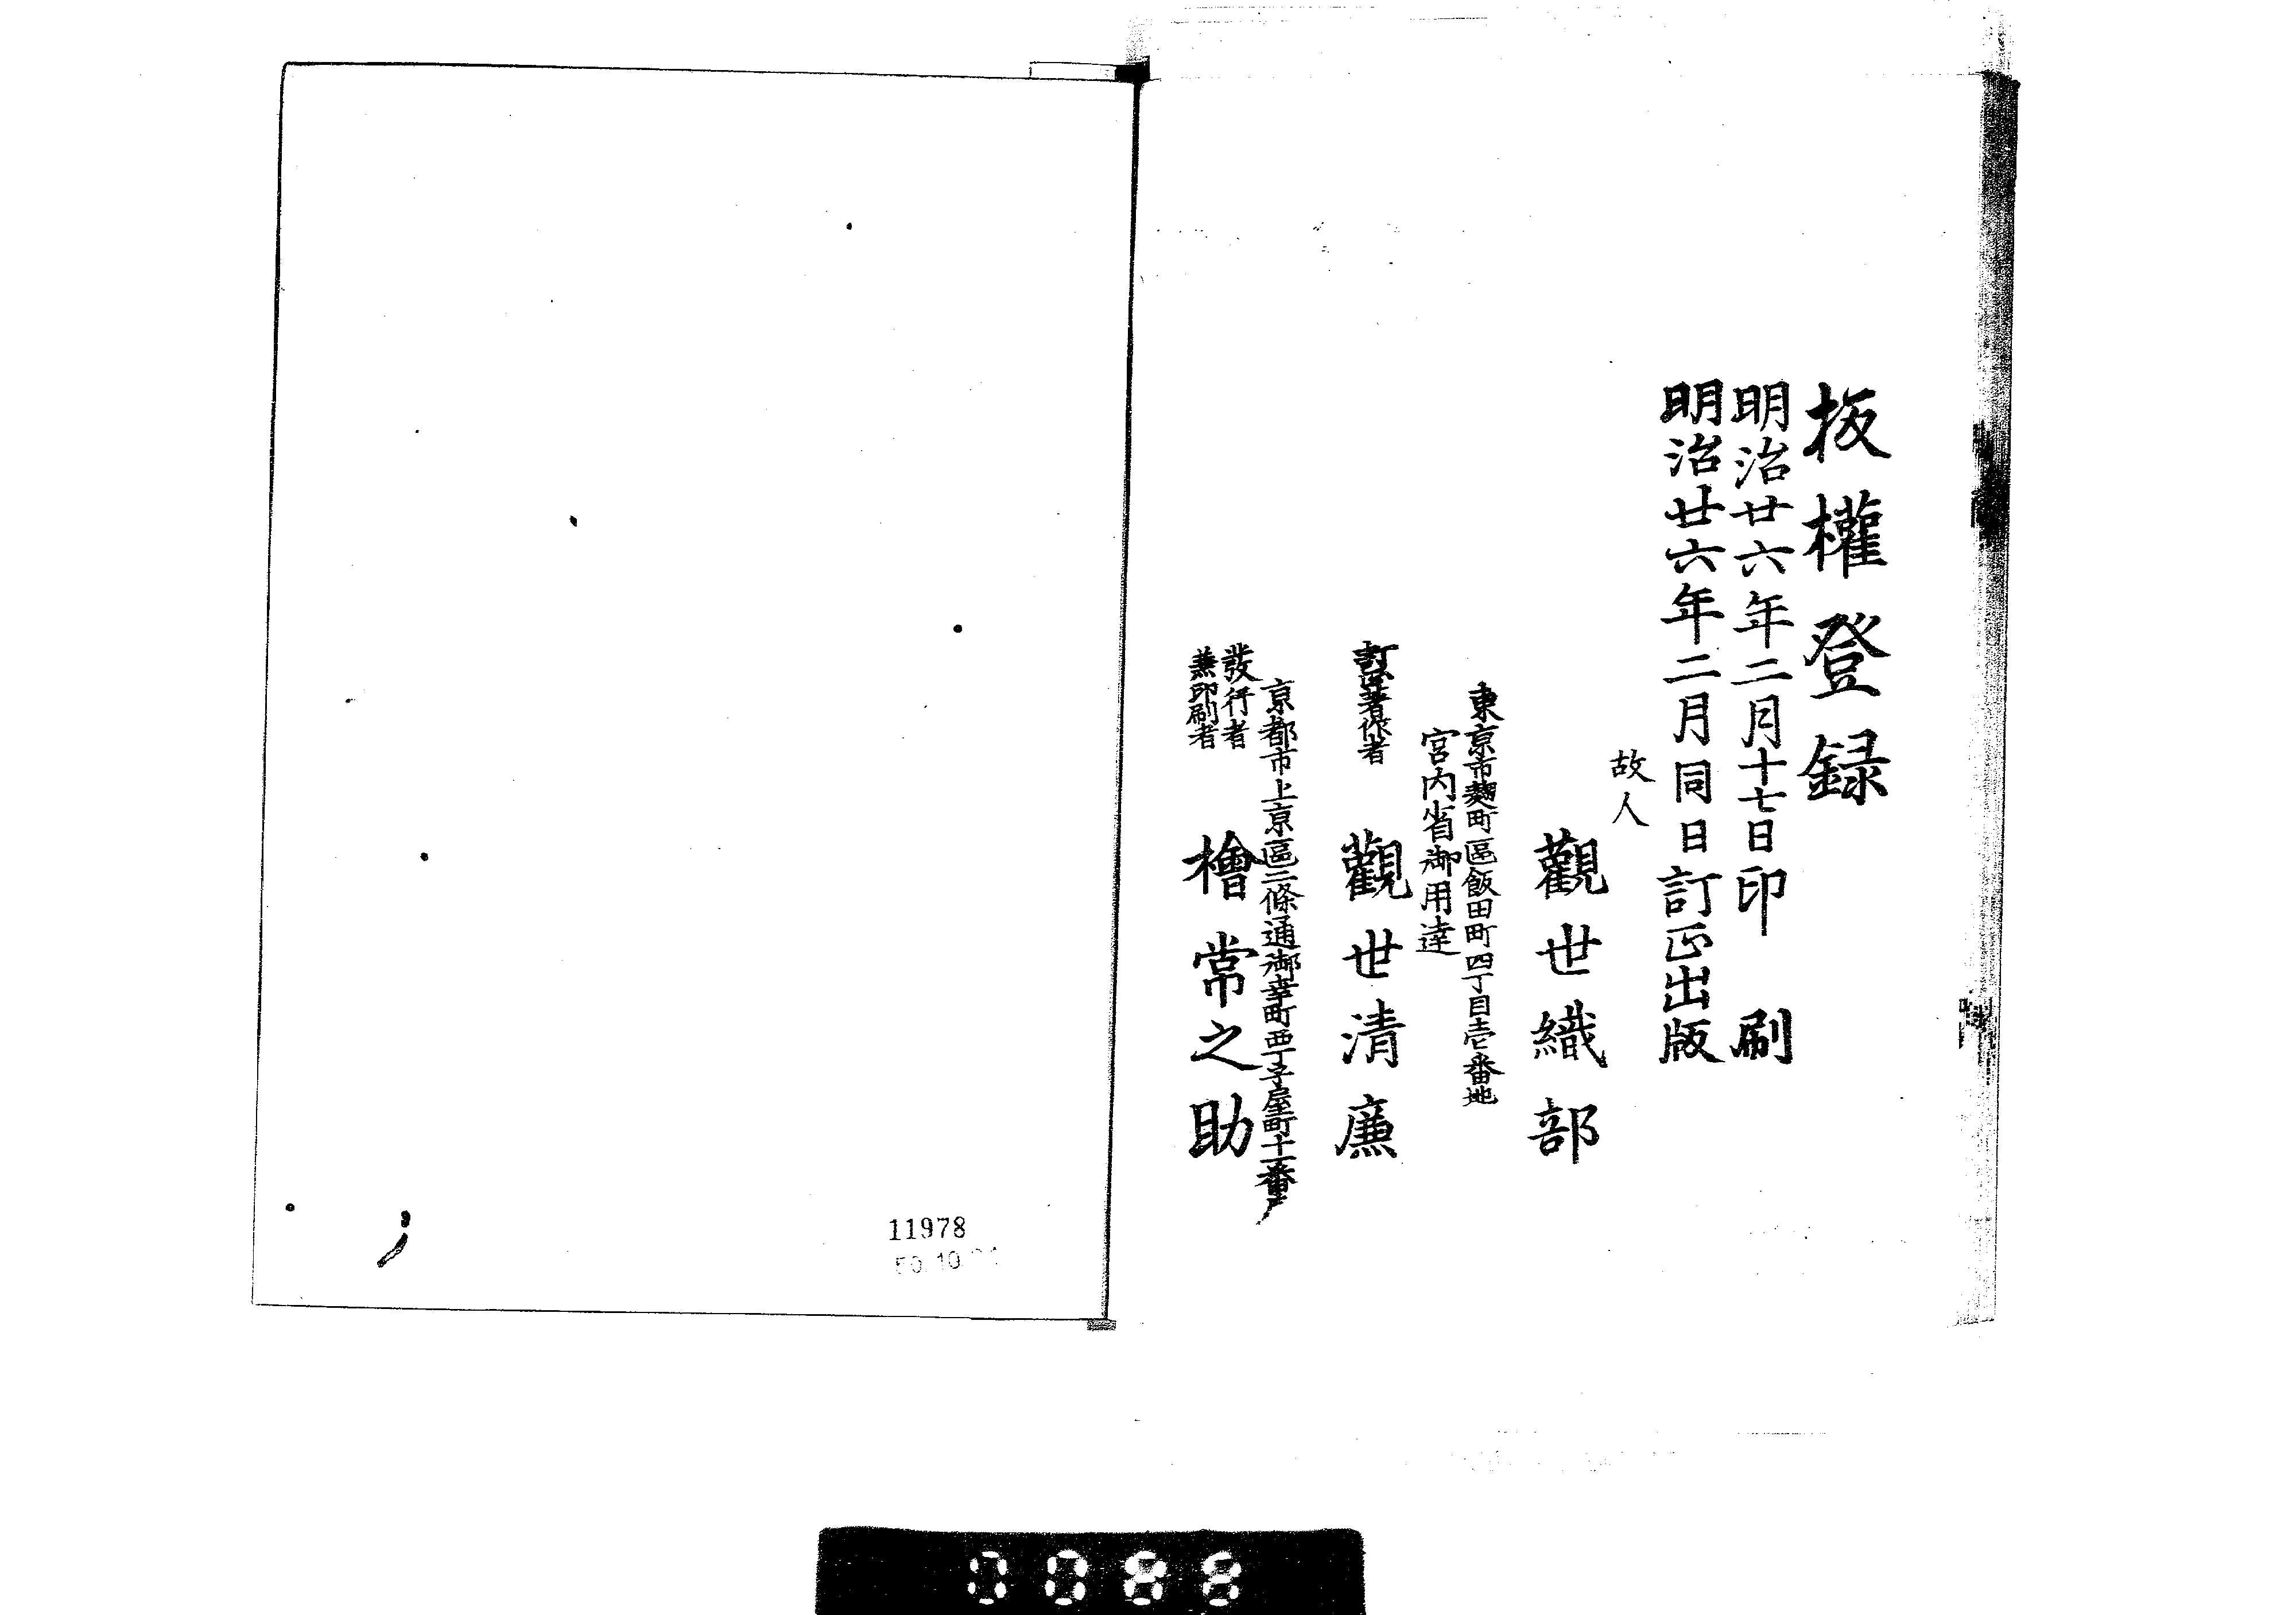 板權登録
明治廿六年二月十七日印刷
明治廿六年二月同日訂正出版
故人
觀世織部
東京市麹町區飯田町四丁目壱番地
宮内省御用達
訂正著作者
觀世清廉
京都市上京區二條通御幸町西丁子屋町十一番戸
發行者
兼印刷者
檜常之助
11978